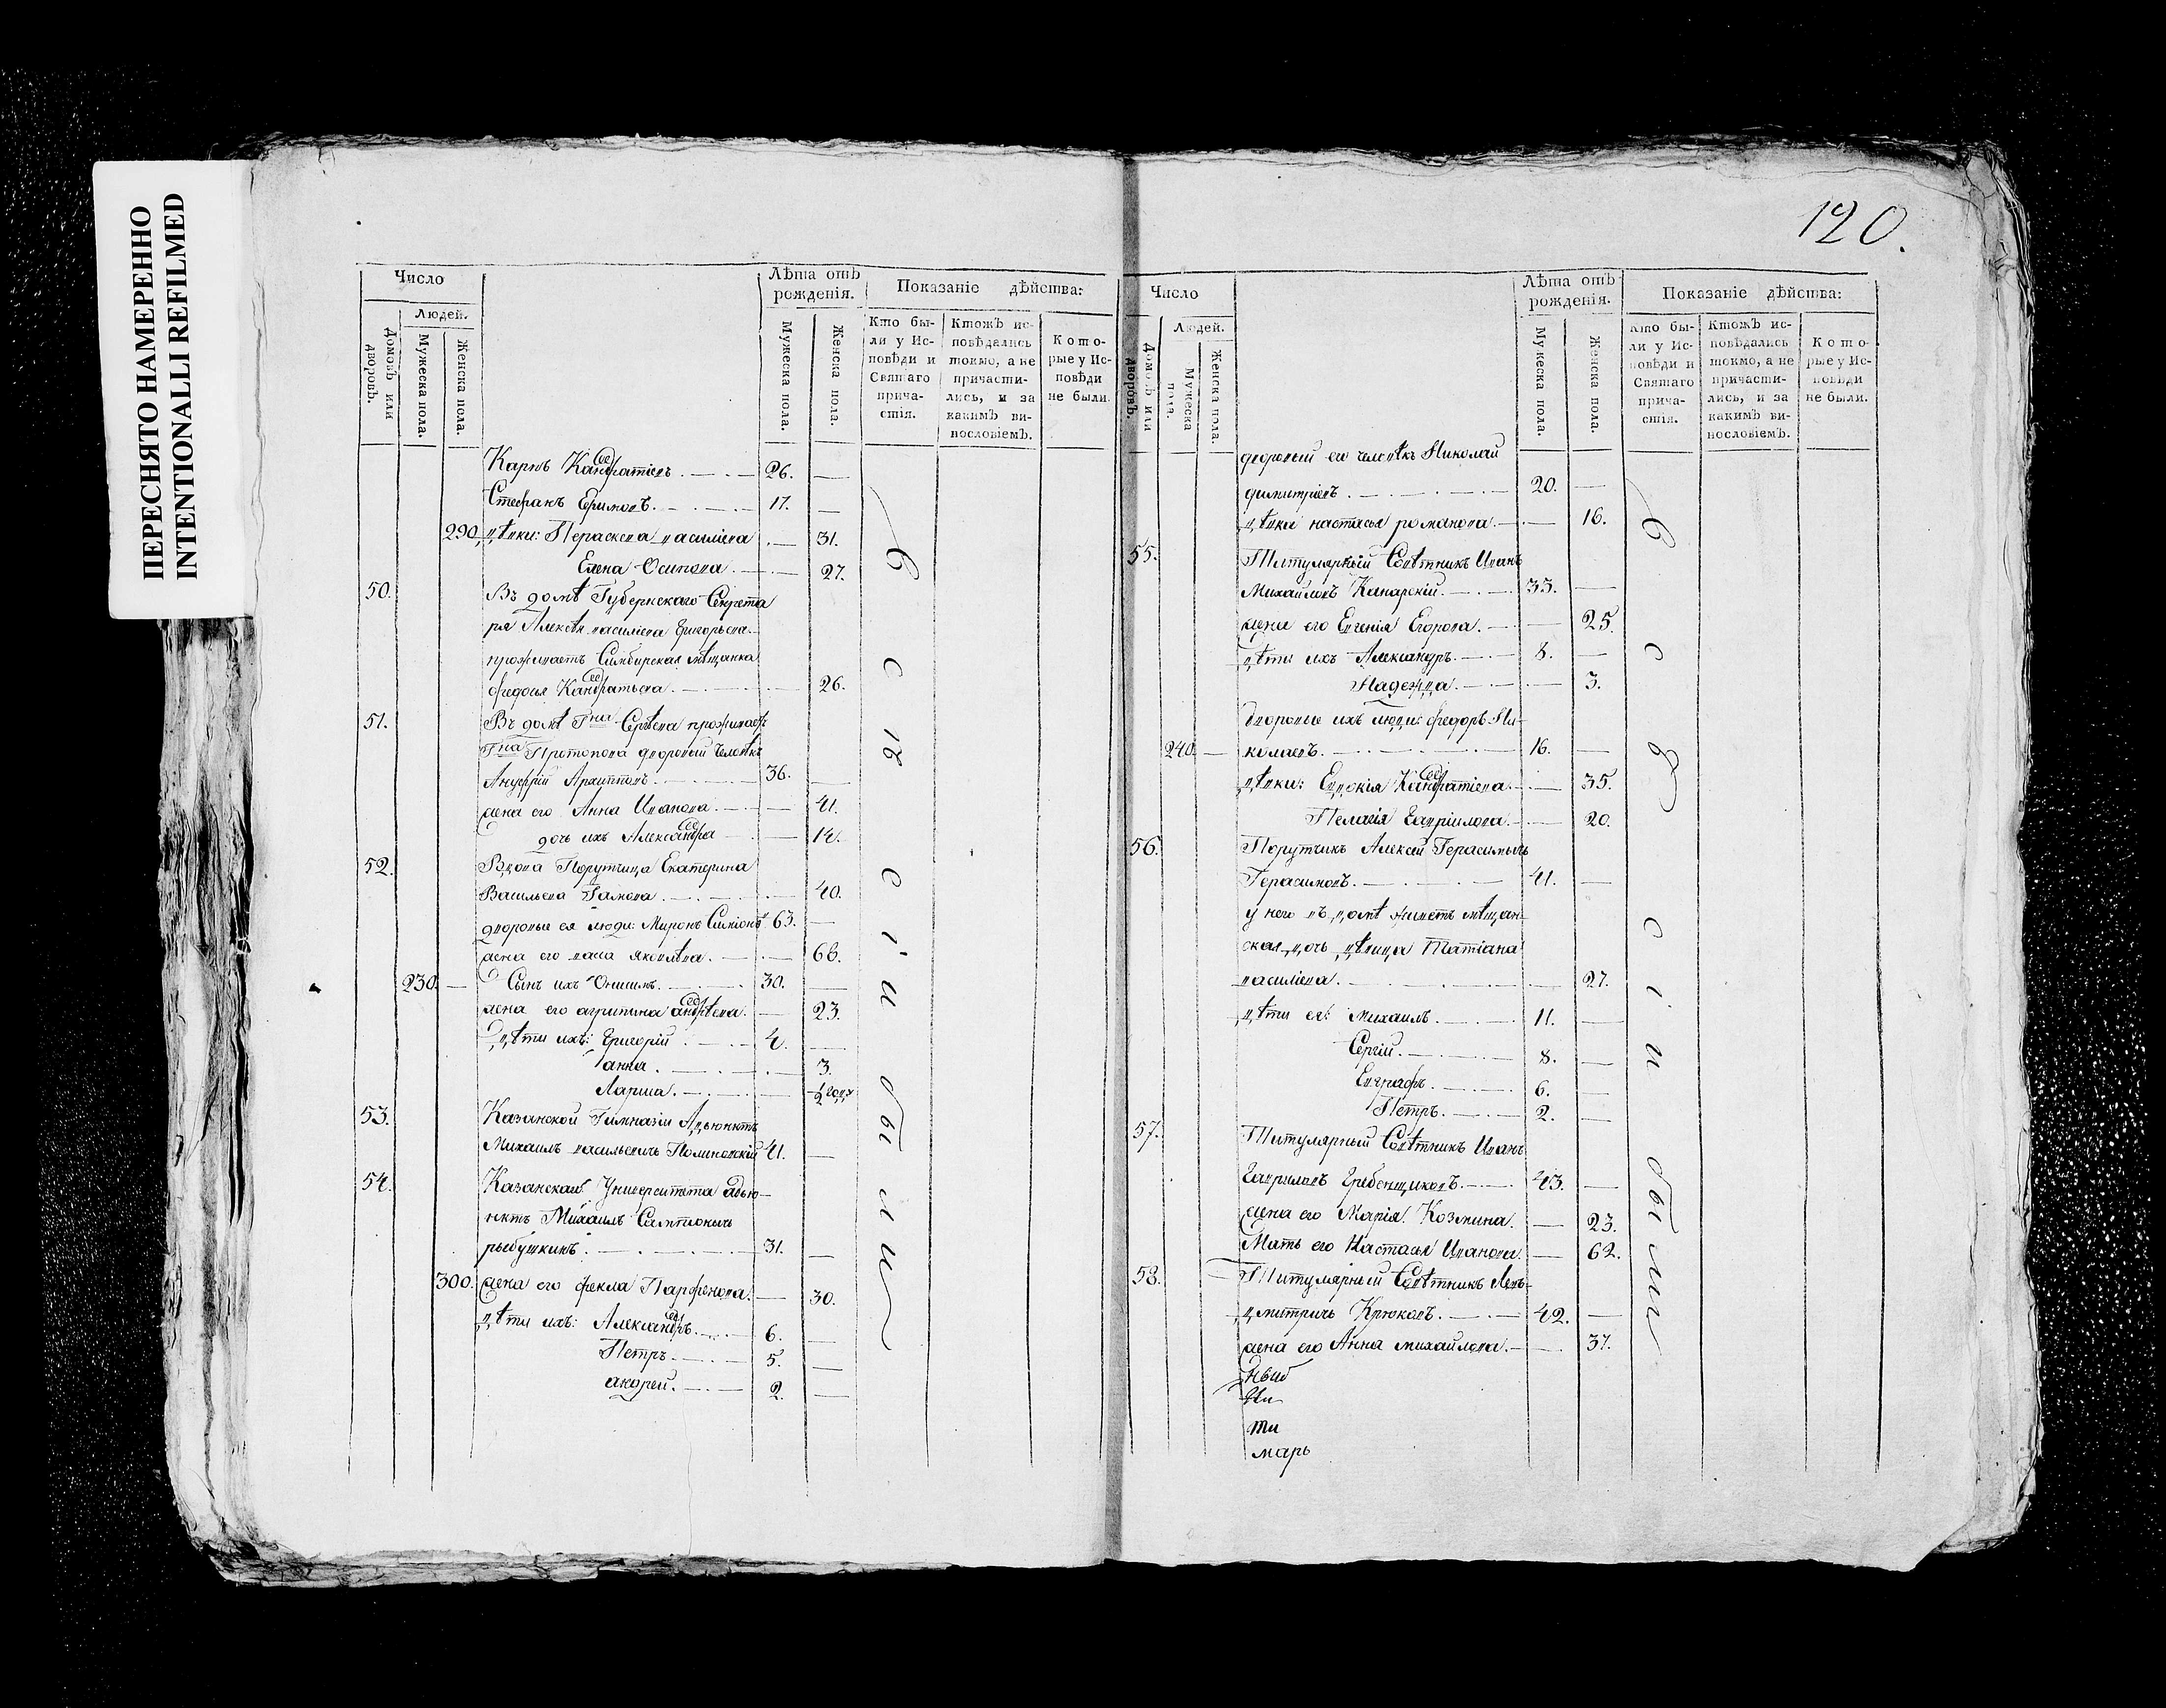 ПЕРЕСНЯТО НАМЕРЕННО
INTENTIONALLI REFILMED
120.
Число
Людей.
Домовъ или дворовъ.
Мужеска пола.
Женска пола.
Лѣта отъ рожденія.
Мужеска пола.
Женска пола.
Показаніе дѣйства:
Кто были у Исповѣди и Святаго причастія.
Ктожъ исповѣдались токмо, а не причастились, и за какимъ винословіемъ.
Которые у Исповѣди не были.
Карпъ Кандратіевъ. 26. —
Стефанъ Ефимовъ. 17. —
290. дѣвки: Параскева василіева — 31.
Елена Осипова. — 27.
50. Въ домѣ Губернскаго Секрета
ря Алексѣя василіева Григорьева
проживаетъ Симбирская мѣщанка
федосья Кандратьева. — 26.
51. Въ домѣ Гна Сергѣева проживаетъ
Гна Протопопа дворовый человѣкъ
Ануфрій Архиповъ. 36. —
жена его Анна Иванова. — 41.
дочь ихъ Александра — 14.
52. Вдова Порутчица Екатерина
Васильева Гамова. — 40.
дворовые ея люди: Миронъ Симіоновъ 63. —
жена его васа яковлева. — 68.
230. — Сынъ ихъ Онисимъ. 30. —
жена его агрипина андреева. — 23.
дѣти ихъ: Григорій 4. —
анна. — 3.
Лариса. — ½ года
53. Казанской Гимназіи Адъюнктъ
Михаилъ васильевичь Полиновскій 41. —
54. Казанскаго Университета адъю-
нктъ Михаилъ Самсоновичь
рыбушкинъ. 31. —
300. жена его фекла Парфенова. — 30.
дѣти ихъ: Александръ. 6. —
Петръ. 5. —
андрей. 2. —
всѣ сіи были
Число
Людей.
Домовъ или дворовъ.
Мужеска пола.
Женска пола.
Лѣта отъ рожденія.
Мужеска пола.
Женска пола.
Показаніе дѣйства:
Кто были у Исповѣди и Святаго причастія.
Ктожъ исповѣдались токмо, а не причастились, и за какимъ винословіемъ.
Которые у Исповѣди не были.
дворовый его человѣкъ Николай
димитріевъ. 20. —
дѣвка настасья романова. — 16.
55. Титулярный Совѣтникъ Иванъ
Михайловъ Канарскій. 33. —
жена его Евгенія Егорова. — 25.
дѣти ихъ Александръ. 8. —
Надежда. — 3.
дворовые ихъ люди: федоръ Ни-
240. — колаевъ. 16. —
дѣвки: Евдокія Кандратіева. — 35.
Пелагія Гавріилова. — 20.
56. Порутчикъ Алексей Герасимычь
Герасимовъ. 41. —
у него въ домѣ живетъ мѣщан-
ская дочь дѣвица Татіана
василіева. — 27.
дѣти ея: Михаилъ. 11. —
Сергій. 8. —
Евграфъ. 6. —
Петръ. 2. —
57. Титулярный Совѣтникъ Иванъ
Гавриловъ Гребенщиковъ. 43. —
жена его Марія Козмина. — 23.
Мать его Настасья Иванова. — 62.
58. Титулярный Совѣтникъ Левъ
дмитричь Крюковъ. 42. —
жена его Анна михайлова. — 37.
ти
марь
всѣ сіи были